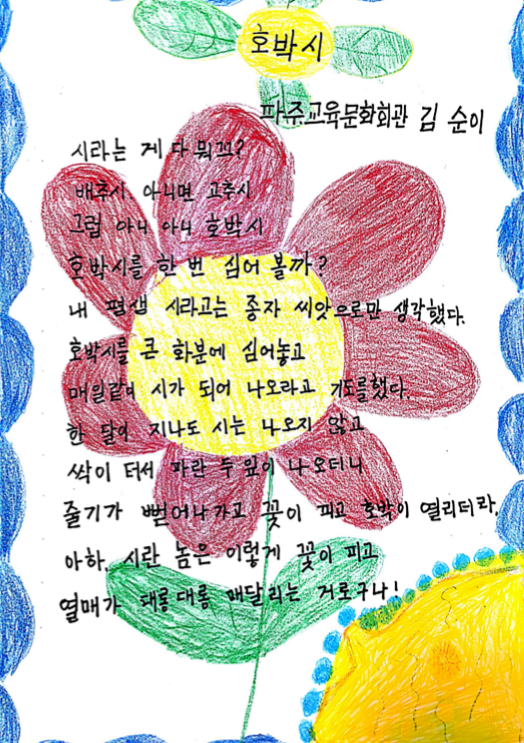 호박시
파주교육문화회관 김 순이
시라는 게 다 뭐꼬?
배추시 아니면 고추시
그럼 아니 아니 호박시
호박시를 한 번 심어 볼까?
내 평생 시라고는 종자 씨앗으로만 생각했다.
호박시를 큰 화분에 심어놓고
매일같이 시가 되어 나오라고 기도를했다.
한 달이 지나도 시는 나오지 않고
싹이 터서 파란 두 잎이 나오더니
줄기가 뻗어나가고 꽃이 피고 호박이 열리더라.
아하. 시란 놈은 이렇게 꽃이 피고
열매가 대롱대롱 매달리는 거로구나!